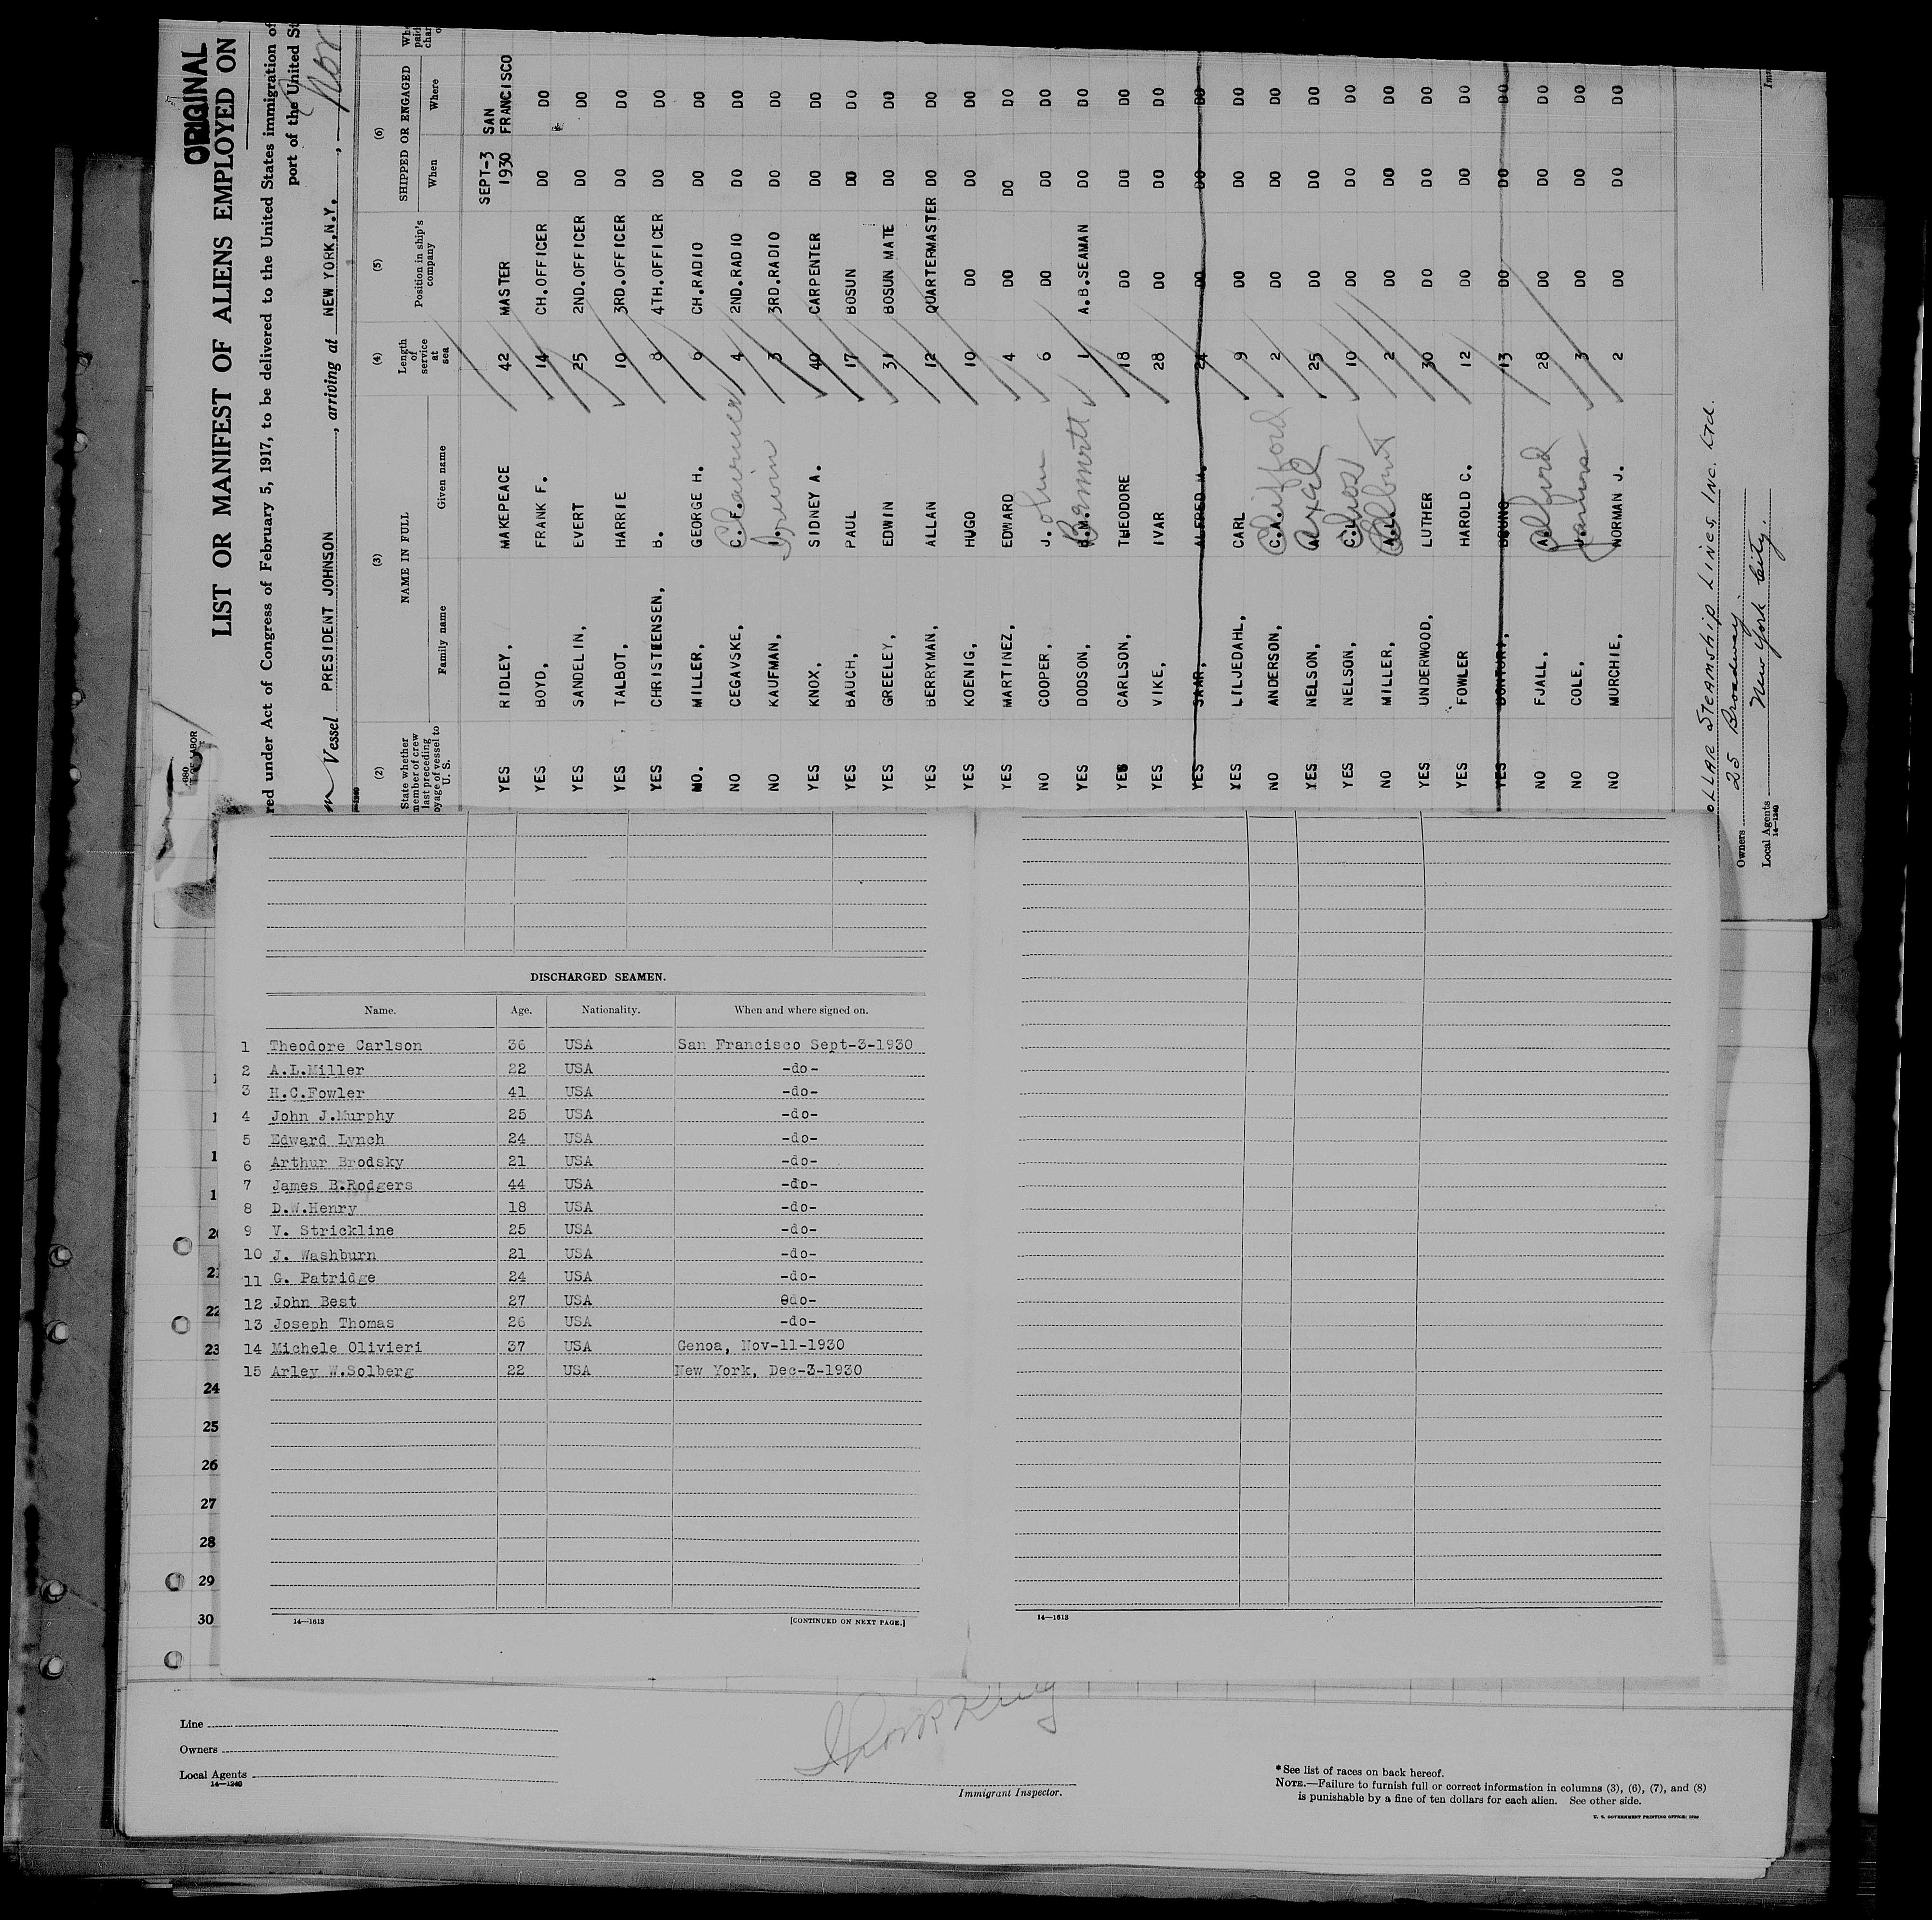 ORIGINAL
LIST OR MANIFEST OF ALIENS EMPLOYED ON
red under Act of Congress of February 5, 1917, to be delivered to the United States immigration of
port of the United St
Vessel PRESIDENT JOHNSON, arriving at NEW YORK, N.Y.,
(2) (3) (4) (5) (6)
State whether member of crew last preceding oyage of vessel to U. S.
NAME IN FULL
Family name Given name
Length of service at sea
Position in ship's company
SHIPPED OR ENGAGED
When Where
YES RIDLEY, MAKEPEACE 42 MASTER SEPT-3 1930 SAN FRANCISCO
YES BOYD, FRANK F. 14 CH.OFFICER DO DO
YES SANDELIN, EVERT 25 2ND.OFFICER DO DO
YES TALBOT, HARRIE 10 3RD.OFFICER DO DO
YES CHRISTEENSEN, B. 8 4TH.OFFICER DO DO
NO. MILLER, GEORGE H. 6 CH.RADIO DO DO
NO CEGAVSKE, C.F. 4 2ND.RADIO DO DO
NO KAUFMAN, I. Irwin 3 3RD.RADIO DO DO
YES KNOX, SIDNEY A. 40 CARPENTER DO DO
YES BAUCH, PAUL 17 BOSUN DO DO
YES GREELEY, EDWIN 31 BOSUN MATE DO DO
YES BERRYMAN, ALLAN 12 QUARTERMASTER DO DO
YES KOENIG, HUGO 10 DO DO DO
YES MARTINEZ, EDWARD 4 DO DO DO
NO COOPER, John 6 DO DO DO
YES DODSON, 1 A.B.SEAMAN DO DO
YES CARLSON, THEODORE 18 DO DO DO
YES VIKE, IVAR 28 DO DO DO
YES SAAR, ALFRED M. 24 DO DO DO
YES LILJEDAHL, CARL 9 DO DO DO
NO ANDERSON, C.A. Clifford 2 DO DO DO
YES NELSON, Axel 25 DO DO DO
YES NELSON, 10 DO DO DO
NO MILLER, A.L. Albert 2 DO DO DO
YES UNDERWOOD, LUTHER 30 DO DO DO
YES FOWLER HAROLD C. 12 DO DO DO
YES BRUNO 13 DO DO DO
NO FJALL, 28 DO DO DO
NO COLE, James 3 DO DO DO
NO MURCHIE, NORMAN J. 2 DO DO DO
OLLAR STEAMSHIP LINES, INC. LTD.
Owners 25 Broadway.
Local Agents New York City.
14—1240
DISCHARGED SEAMEN.
Name. Age. Nationality. When and where signed on.
1 Theodore Carlson 36 USA San Francisco Sept-3-1930
2 A.L.Miller 22 USA -do-
3 H.C.Fowler 41 USA -do-
4 John J.Murphy 25 USA -do-
5 Edward Lynch 24 USA -do-
6 Arthur Brodsky 21 USA -do-
7 James B.Rodgers 44 USA -do-
8 D.W.Henry 18 USA -do-
9 V. Strickline 25 USA -do-
10 J. Washburn 21 USA -do-
11 G. Patridge 24 USA -do-
12 John Best 27 USA 0do-
13 Joseph Thomas 26 USA -do-
14 Michele Olivieri 37 USA Genoa, Nov-11-1930
15 Arley W.Solberg 22 USA New York, Dec-3-1930
22
23
24
25
26
27
28
29
30
14—1613 [CONTINUED ON NEXT PAGE.]
14—1613
Line
Owners
Local Agents
14—1240
Immigrant Inspector.
*See list of races on back hereof.
NOTE.—Failure to furnish full or correct information in columns (3), (6), (7), and (8)
is punishable by a fine of ten dollars for each alien. See other side.
U. S. GOVERNMENT PRINTING OFFICE: